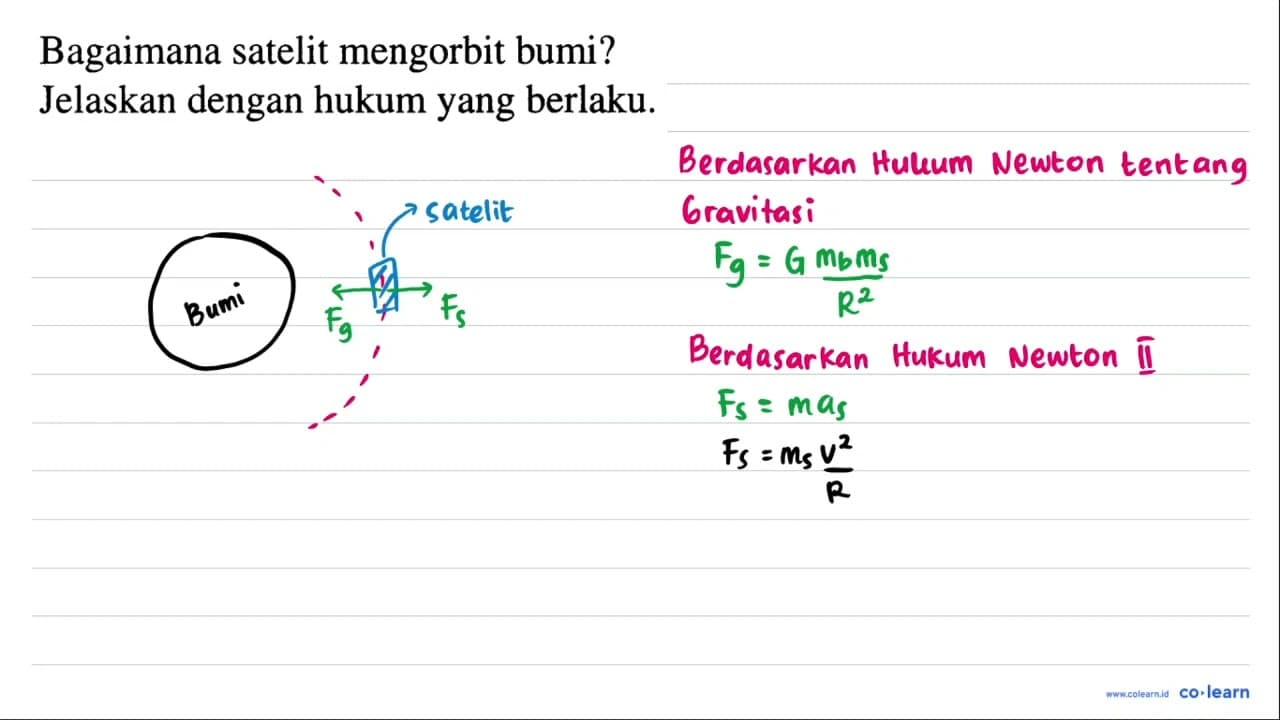 Bagaimana satelit mengorbit bumi?
Jelaskan dengan hukum yang berlaku.
satelit
Bumi
Fg
Fs
Berdasarkan Hukum Newton tentang
Gravitasi
Fg = G mbms/R²
Berdasarkan Hukum Newton II
Fs = mas
Fs = ms v²/R
www.colearn.id co•learn